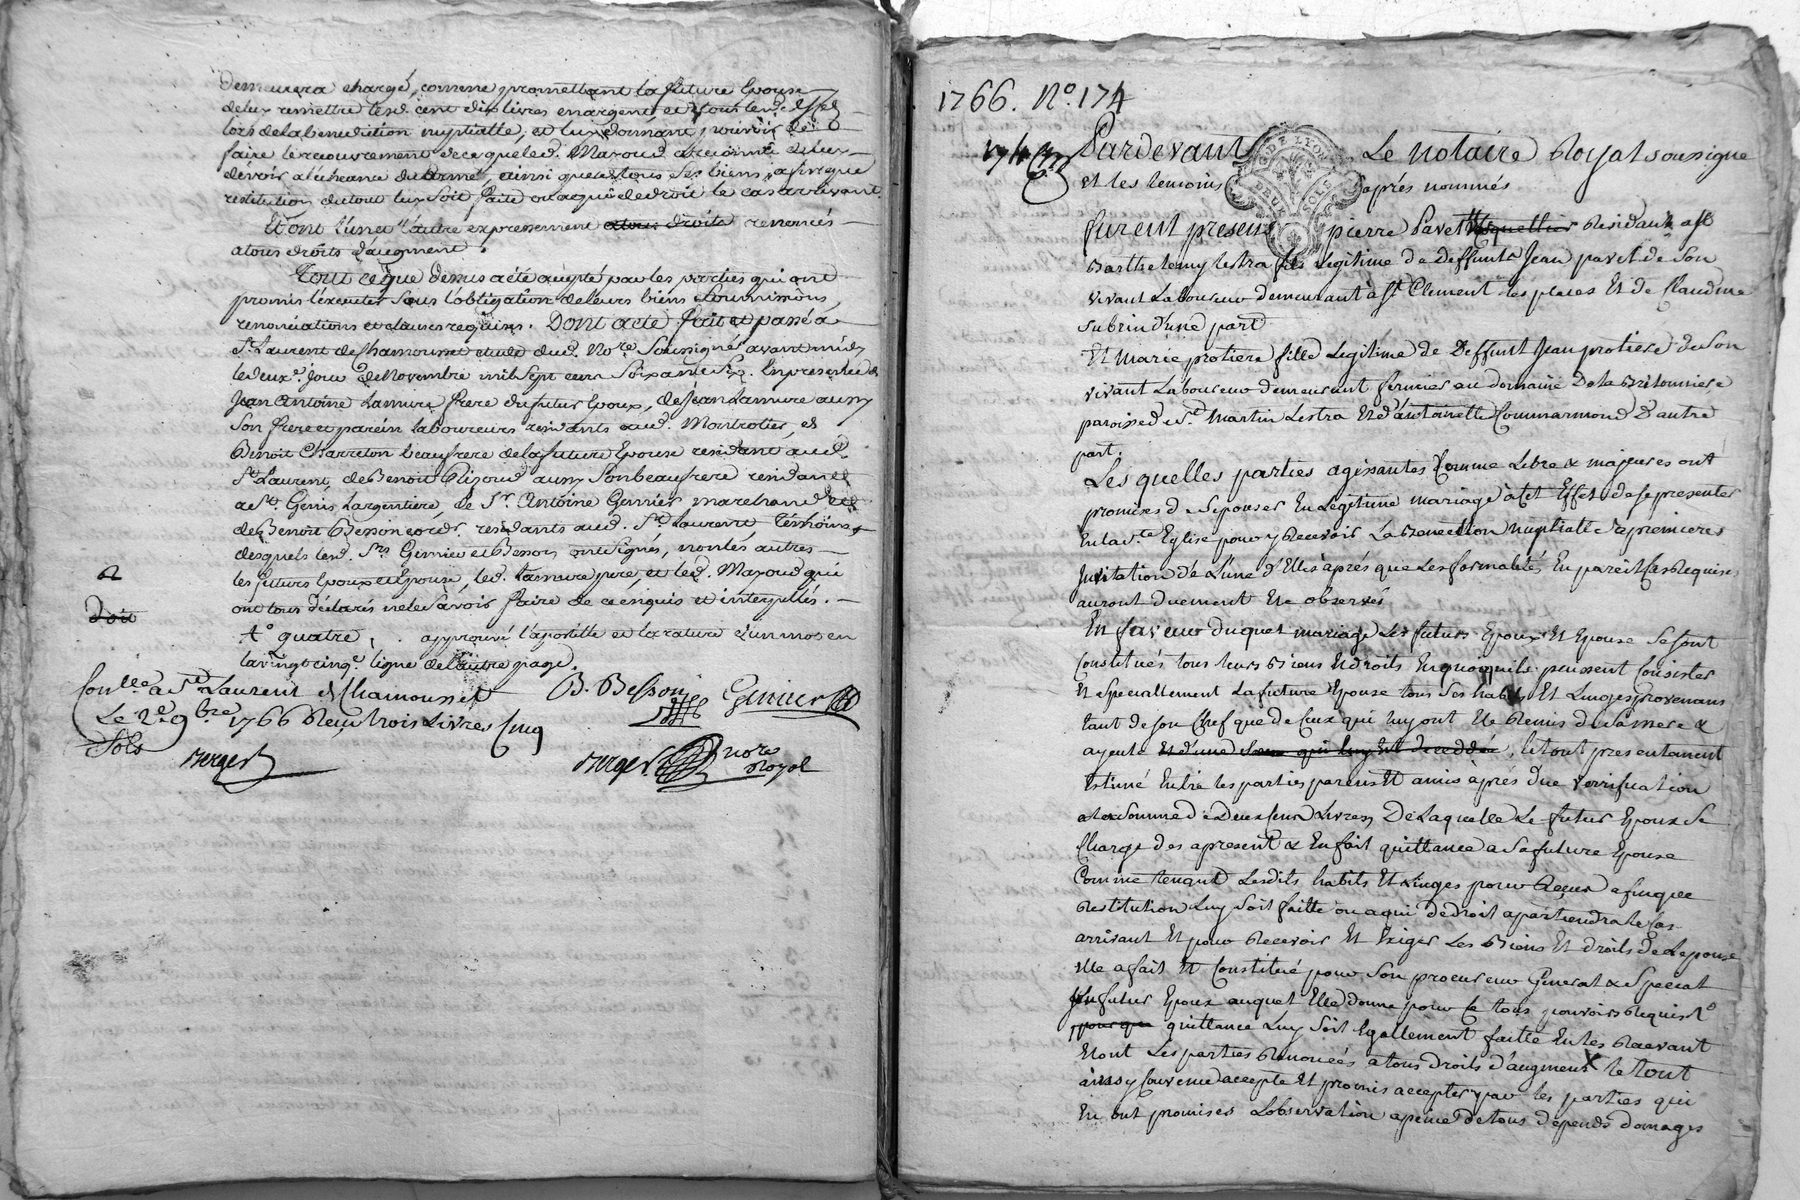 demeurera chargé, comme promettant la future Epouse
de luy remettre lesd. cent dix livres en argent et tous lesd. effets
lors de la benediction nuptialle, et luy donnant pouvoir de
faire le recouvrement de ce que led. Mazoud
devoir a l'écheance du terme, ainsi que tous ses biens, afin que
restitution du tout luy soit faite ou a qui de droit le cas arrivant
Et ont l'une et l'autre expressement a tous droits renoncés
a tous droits d'augment.
Tout ce que dessus a été accepté par les parties qui ont
promis l'executer sous l'obligation de leurs biens soumissions,
renonciations et clauses requises. Dont acte fait et passé a
St. Laurent de Chamousset etude dud. Nore. Soussigné avant midy
le deuxe. jour de Novembre mil sept cens soixante six. En presence de
Jean Antoine Lamure frere du futur Epoux, de Jean Lamure aussy
son frere et parein laboureurs residants aud. Montrotier, et
Benoit Charreton beaufrere de la future Epouse residant aud.
St. Laurent, de Benoit Rijoud aussy son beaufrere residant
a St. Genis Largentiere, de Sr. Antoine Genier marchand et
de Benoit Besson cordr. residants aud. St. Laurent Témoins
desquels lesd. Srs. Genier et Besson ont signés, non les autres
les futurs Epoux et Epouse, led. Lamure pere, et led. Mazoud qui
ont tous déclarés ne le sçavoir faire de ce enquis et interpellés.
Fo. quatre, approuvé l'apostille et la rature d'un mot en
la vingt cinqe. ligne de l'autre page.
Doit
Conllé a St. Laurent de Chamousset
Le 2e. 9bre 1766 Reçu trois Livres Cinq
Sols
Berger
B. Besson
Genier
Berger nore
Royal
1766. No. 174
174
G. DE LYON
DEUX SOLS
Pardevant Le notaire Royal soussigne
et les temoins après nommés
furent presens pierre Pavet Residant a St
Barthelemy lestra fils légitime de Deffunt Jean pavet de son
vivant Laboureur demeurant à St. Clement les places Et de Claudine
subrin d'une part
Et marie protiere fille Legitime de Deffunt Jean protiere de son
vivant Laboureur demeurant fermier au domaine De la Bretonniere
paroisse de St. martin Lestra Et d'antoinette Commarmond D'autre
part.
Lesquelles parties agissantes Comme Libre & majeures ont
promises de sepouser En Légitime mariage à Cet Effet de se presenter
En la Ste Eglise pour y Recevoir La Benediction Nuptiale Es premieres
Invitation de L'une d'Elles après que Les formalités En pareil Cas Requises
auront duement Ete observés
En faveur duquel mariage Les futurs Epoux Et Epouse Se sont
Constitués tous leurs Biens Et droits En quoi qu'ils puissent Consister
Et specialement La future Epouse tous ses habits Et Linges provenans
tant de son Chef que de Ceux qui luy ont Ete Remis de Sa mere &
ayeule Et d'une Soeur qui luy Est decedée, le tout presentement
Estimé Entre les parties parens Et amis après Due verrification
a la somme de Deux Cens Livres De Laquelle Le futur Epoux Se
Charge des apresent & En fait quittance a Sa future Epouse
Comme tenant Lesdits habits Et Linges pour Reçus afin que
Restitution Luy Soit faitte ou a qui De droit apartiendra le Cas
arrivant Et pour Recevoir Et Exiger Les Biens Et droits De Lepouse
Elle a fait Et Constitué pour Son procureur General & Special
futur Epoux auquel Elle donne pour Ce tous pouvoirs Requis
pour que quittance Luy Soit Egallement faitte En les Recevant
Et ont Les parties Renoncés a tous Droits d'augment le tout
ainsy Convenu accepté Et promis accepter par les parties qui
En ont promises Lobservation a peine De tous Depends Domages